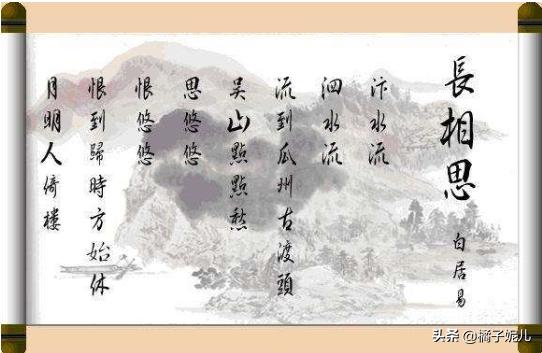 長相思
白居易
汴水流
泗水流
流到瓜州古渡頭
吴山點點愁
思悠悠
恨悠悠
恨到歸時方始休
月明人倚楼
头条 @橘子妮儿